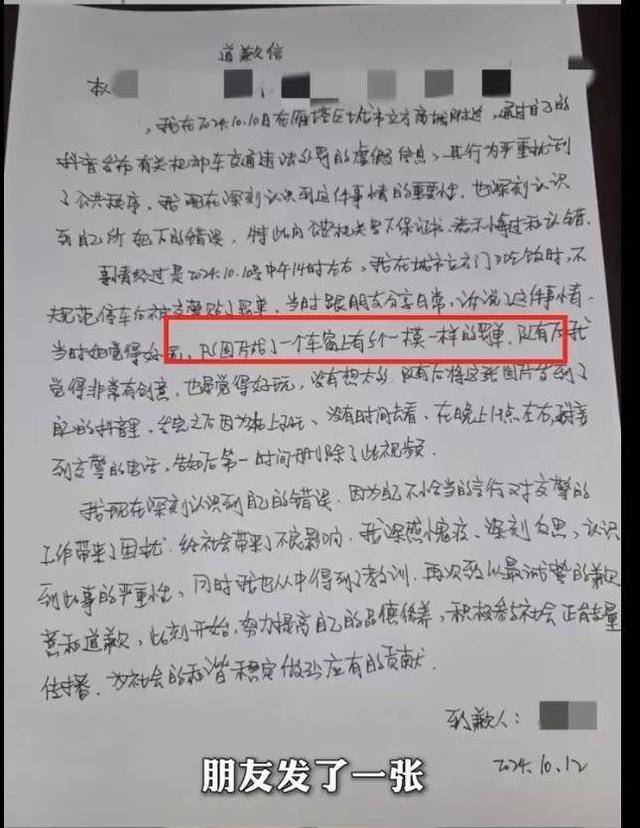 道歉信
本人
，我在2024.10.10日在雁塔区城市立方商城附近，通过自己的
抖音发布有关机动车交通违法处罚的虚假信息，其行为严重扰乱到
了公共秩序，我现在深刻认识到这件事情的重要性，也深刻认识
到自己所犯下的错误，特此向公安机关写下保证书，表示悔过和认错。
事情经过是2024.10.10号中午14时左右，我在城市立方门口吃饭时，不
规范停车后被交警贴了罚单，当时跟朋友分享日常，诉说了这件事情，
当时她觉得好玩，PS图片给了一个车窗上有5个一模一样的罚单，随后我
觉得非常有创意，也是觉得好玩，没有想太多，随后将这张图片发到了
自己的抖音里，发完之后因为在上班，没有时间去看，在晚上11点左右，接
到交警的电话，告知后第一时间删除了此视频．
我现在深刻认识到自己的错误，因为自己不恰当的言行对交警的
工作带来了困扰，给社会带来了不良影响，我深感愧疚，深刻反思，认识
到此事的严重性，同时我也从中得到了教训，再次致以最诚挚的歉
意和道歉，此刻开始，努力提高自己的品德修养，积极参与社会正能量
传播，为社会的和谐稳定做出应有的贡献．
致歉人：
2024.10.12
朋友发了一张